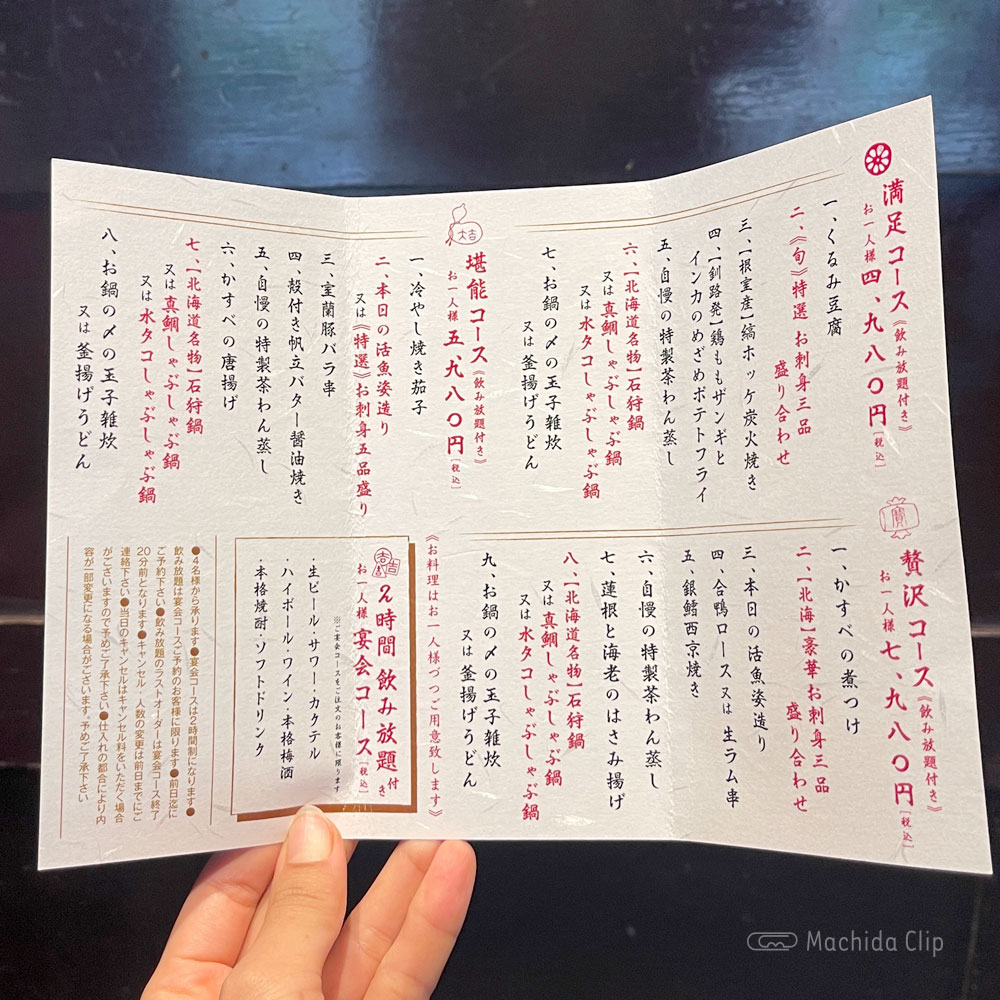 満足コース《飲み放題付き》
お一人様 四、九八〇円［税込］
一、くるみ豆腐
二、《旬》特選 お刺身三品
盛り合わせ
三、【根室産】縞ホッケ炭火焼き
四、【釧路発】鶏ももザンギと
インカのめざめポテトフライ
五、自慢の特製茶わん蒸し
六、【北海道名物】石狩鍋
又は真鯛しゃぶしゃぶ鍋
又は水タコしゃぶしゃぶ鍋
七、お鍋の〆の玉子雑炊
又は釜揚げうどん
大吉
堪能コース《飲み放題付き》
お一人様 五、九八〇円［税込］
一、冷やし焼き茄子
二、本日の活魚姿造り
又は《特選》お刺身五品盛り
三、室蘭豚バラ串
四、殻付き帆立バター醤油焼き
五、自慢の特製茶わん蒸し
六、かすべの唐揚げ
七、【北海道名物】石狩鍋
又は真鯛しゃぶしゃぶ鍋
又は水タコしゃぶしゃぶ鍋
八、お鍋の〆の玉子雑炊
又は釜揚げうどん
寶
贅沢コース《飲み放題付き》
お一人様 七、九八〇円［税込］
一、かすべの煮つけ
二、【北海】豪華お刺身三品
盛り合わせ
三、本日の活魚姿造り
四、合鴨ロース 又は 生ラム串
五、銀鱈西京焼き
六、自慢の特製茶わん蒸し
七、蓮根と海老のはさみ揚げ
八、【北海道名物】石狩鍋
又は真鯛しゃぶしゃぶ鍋
又は水タコしゃぶしゃぶ鍋
九、お鍋の〆の玉子雑炊
又は釜揚げうどん
《お料理はお一人様づつご用意致します》
2時間 飲み放題付き
お一人様 宴会コース［税込］
※ご宴会コースをご注文のお客様に限ります
・生ビール・サワー・カクテル
・ハイボール・ワイン・本格梅酒
・本格焼酎・ソフトドリンク
●4名様から承ります●宴会コースは2時間制になります●
飲み放題は宴会コースご予約のお客様に限ります●前日迄に
ご予約下さい●飲み放題のラストオーダーは宴会コース終了
20分前となります●キャンセル、人数の変更は前日までにご
連絡下さい●当日のキャンセルはキャンセル料をいただく場合
がございますので予めご了承下さい●仕入れの都合により内
容が一部変更になる場合がございます。予めご了承下さい
Machida Clip